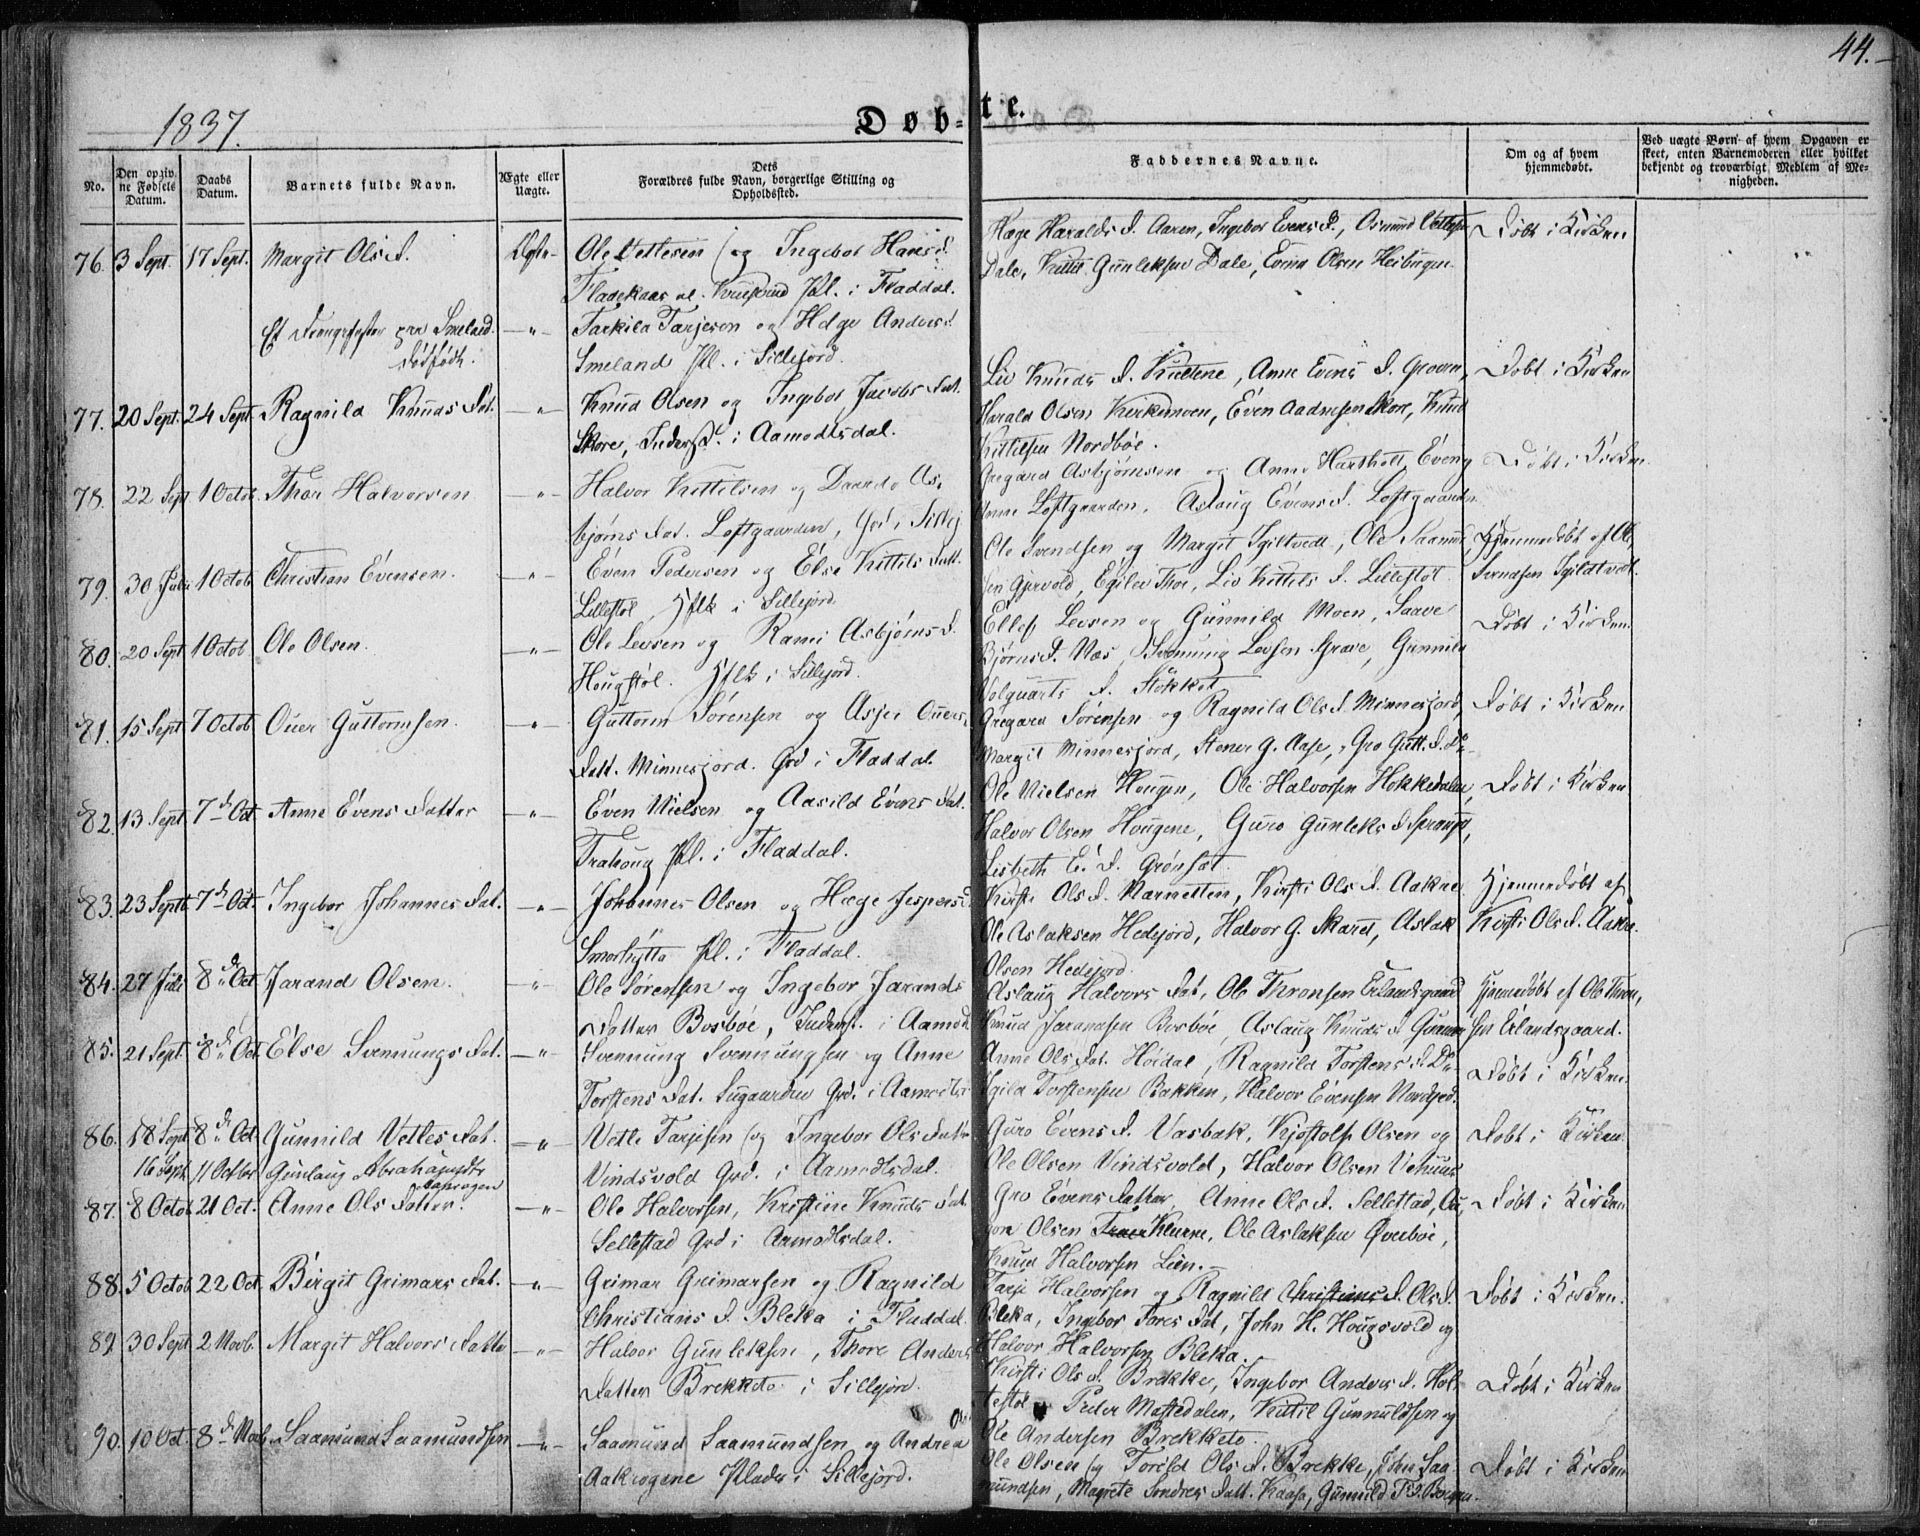 44.
1837.
Døbte.
No.
Den opgivne Fødsels Datum.
Daabs Datum.
Barnets fulde Navn.
Ægte eller Uægte.
Dets Forældres fulde Navn, borgerlige Stilling og Opholdssted.
Faddernes Navne.
Om og af hvem hjemmedøbt.
Ved uægte Børn af hvem Opgaven er skeet, enten Barnemoderen eller hvilket bekjendt og troværdigt Medlem af Menigheden.
76. 3 Sept. 17 Sept. Margit Ols D. Ægte Ole Vetlesen og Ingebor Hans D.
Fladekaas Pl. i Fladdal.
Hæge Haralds D. Aaren, Ingebor Evens D., Osmund Vetlesen
Dale, Knud Gunleksen Dale, Evind Olsen Heibugen
Døbt i Kirken
Et Drengefoster paa Smeland — " — Tarkild Tarjesen og Helge Anders D.
dødfødt. Smeland Pl. i Sillejord.
77. 20 Sept. 24 Sept. Ragnild Knuds Dat. — " — Knud Olsen og Ingebor Jacobs Dat.
Skore, Inderst. i Aamodtsdal.
Liv Knuds D. Kultene, Anne Evens D. Groven,
Harald Olsen Kirkemoen, Even Aadnesen Skore, Knud
Kittilsen Nordbøe.
Døbt i Kirken
78. 22 Sept 1 Octob. Thor Halvorsen — " — Halvor Kittilsen og Daarde As-
bjørns Dat. Loftgaarden, Grd i Sillej
Gregard Asbjørnsen og Anne Hartholt, Even og
Anne Loftgaarden, Aslaug Evens D. Loftgaarden
Døbt i Kirken.
79. 30 Juli 1 Octob. Christian Evensen. — " — Even Pedersen og Else Kittils Datt.
Lillestøl, i Sillejord
Ole Svendsen og Margit Sgiltvedt, Ole Saamund
sen Gjervold, Egilev Thoe, Liv Kittils D. Lillestøl.
Hjemmedøbt af Ole
Svendsen Sgildtvedt.
80. 20 Sept 1 Octob. Ole Olsen. — " — Ole Levsen og Rami Asbjørns D.
Hougstøl. i Sillejord.
Ellef Levsen og Gunnild Moen, Saave
Bjørns D. Næs, Svenung Levsen Grave, Gunnild
Volquarts D. Stokket
Døbt i Kirken.
81. 15 Sept 7 Octob Ouer Guttormsen. " — Guttorm Sørensen og Asjer Ouers
Datt. Minnesjord. Grd i Fladdal.
Gregard Sørensen og Ragnild Ols D. Minnesjord,
Margit Minnesjord, Stener G. Aase, Gro Gutt. D. Do
Døbt i Kirken
82. 13 Sept 7de Oct Anne Evens Datter — " — Even Nielsen og Aasild Evens Dat.
Trahoug Pl. i Fladdal.
Ole Nielsen Hougen, Ole Halvorsen Hokkedalen,
Halvor Olsen Hougene, Guro Gunleks D.
Lisbeth E. D. Grønsæt
Døbt i Kirken
83. 23 Septb. 7de Oct. Ingebor Johannes Dat. — " — Johannes Olsen og Hæge Jespers D.
Smorhytta Pl. i Fladdal.
Kirsti Ols D. Narnetten, Kirsti Ols D. Aakre
Ole Aslaksen Hedejord, Halvor G. Skaret, Aslak
Olsen Hedejord.
Hjemmedøbt af
Kirsti Ols D. Aakre.
84. 27 Juli 8de Oct Jarand Olsen. — " — Ole Sørensen og Ingebor Jarands
Datter Bosbøe, Inderst. i Aamod
Aslaug Halvors Dat, Ole Thronsen Erlandsgaard
Knud Jarandsen Bosbøe, Aslaug Knuds D.
Hjemmedøbt af Ole Thron,
sen Erlandsgaard.
85. 21 Sept. 8de Oct. Else Svennungs Dat. — " — Svennung Svennungsen og Anne
Torstens Dat. Sugaarden Grd. i Aamodts
Anne Ols Dat. Høidal, Ragnild Torstens D. Do
Egild Torstensen Bakken, Halvor Evensen Nordsjød.
Døbt i Kirken.
86. 18 Sept. 8de Oct. Gunnild Vetles Dat. — " — Vetle Tarjesen og Ingebor Ols Datter
16 Sept. 11 Octbr Gunlaug Abrahamdtr Aakrogen
Vindsvold Grd. i Aamodtsdal.
Guro Evens D. Vasbak, Kjøstolf Olsen og
Ole Olsen Vindsvold, Halvor Olsen Vehuus
Døbt i Kirken.
87. 8 Octob. 21 Oct. Anne Ols Datter. — " — Ole Halvorsen, Kristine Knuds Dat.
Sellestad Grd i Aamodtsdal.
Gro Evens Datter, Anne Ols D. Sellestad, Au,
gon Olsen Klurre, Ole Aslaksen Øverbøe,
Knud Halvorsen Lien.
Døbt i Kirken
88. 5 Octob. 22 Oct. Birgit Grimars Dat. — " — Grimar Grimarsen og Ragnild
Christians D. Bleka i Fladdal.
Tarje Halvorsen og Ragnild Christians D. Ols D.
Bleka, Ingebor Tores Dat, John H. Hougsvold og
Halvor Halvorsen Bleka.
Døbt i Kirken.
89. 30 Sept. 2 Novb. Margit Halvors Datter — " — Halvor Gunleksen, Thore Anders
Datter Brekketo i Sillejord.
Kirsti Ols D. Brekke, Ingebor Anders D. Hol-
testøl Peder Mostedalen, Kittil Gunnuldsen og
Ole Andersen Brekketo.
Døbt i Kirken
90. 10 Oct. 8de Novb. Saamund Saamundsen — " — Saamund Saamundsen og Andrea Ols
Aakrogene Plads i Sillejord.
Ole Olsen og Torild Ols D. Brekke, John Saa-
mundsen, Magrete Sondres Datt. Kaasa, Gunnild T. D.
Døbt i Kirken